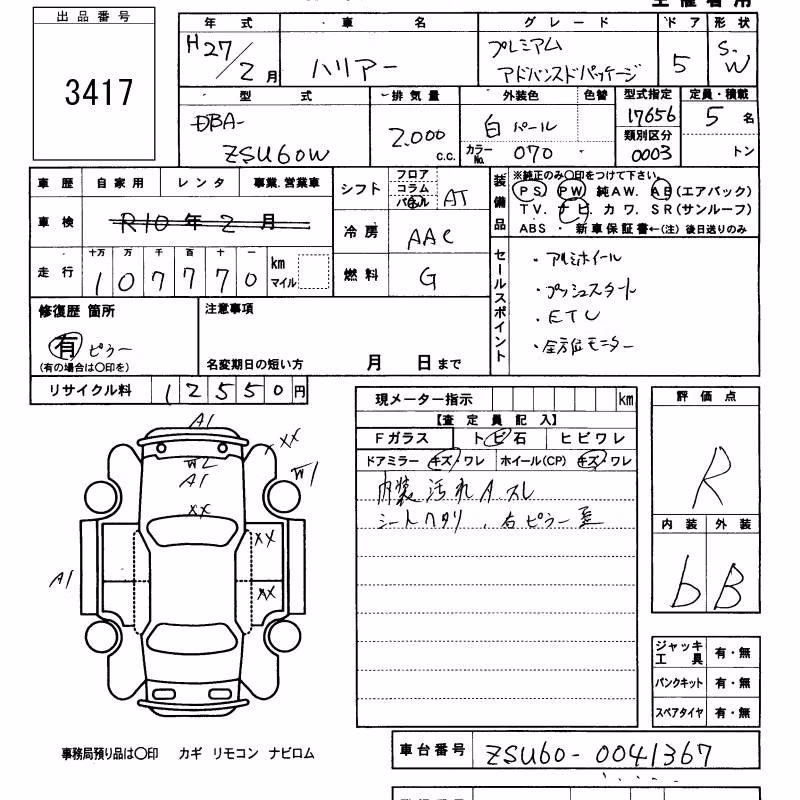 出品番号
3417
年式 車名 グレード ドア 形状
H27/2月 ハリアー プレミアム アドバンスドパッケージ 5 S.W
型式 排気量 外装色 色替 型式指定 定員・積載
DBA-
ZSU60W
2.000 c.c.
白 パール
カラーNo. 070
17656
類別区分
0003
5 名
トン
車歴 自家用 レンタ 事業.営業車
車検 R10年2月
走行 十万 万 千 百 十 一
107770 km マイル
シフト フロア コラム AT
冷房 AAC
燃料 G
装備品
※純正のみ〇印をつけて下さい。
PS PW 純AW. AB(エアバック)
TV. ナビ. カワ. SR(サンルーフ)
ABS ・ 新車保証書←(注) 後日送りのみ
セールスポイント
・アルミホイール
・プッシュスタート
・ETC
・全方位モニター
修復歴 箇所
有 ピラー
(有の場合は〇印を)
注意事項
名変期日の短い方 月 日まで
リサイクル料 12550円
現メーター指示 km
【査定員記入】
Fガラス トビ石 ヒビワレ
ドアミラー キズ・ワレ ホイール(CP) キズ・ワレ
内装汚れ A スレ
シートヘタリ . 右ピラー歪
評価点
R
内装 外装
b B
A1
XX
W2
A1
W1
XX
XX
XX
A1
ジャッキ工具 有・無
パンクキット 有・無
スペアタイヤ 有・無
事務局預り品は〇印 カギ リモコン ナビロム
車台番号 ZSU60-0041367